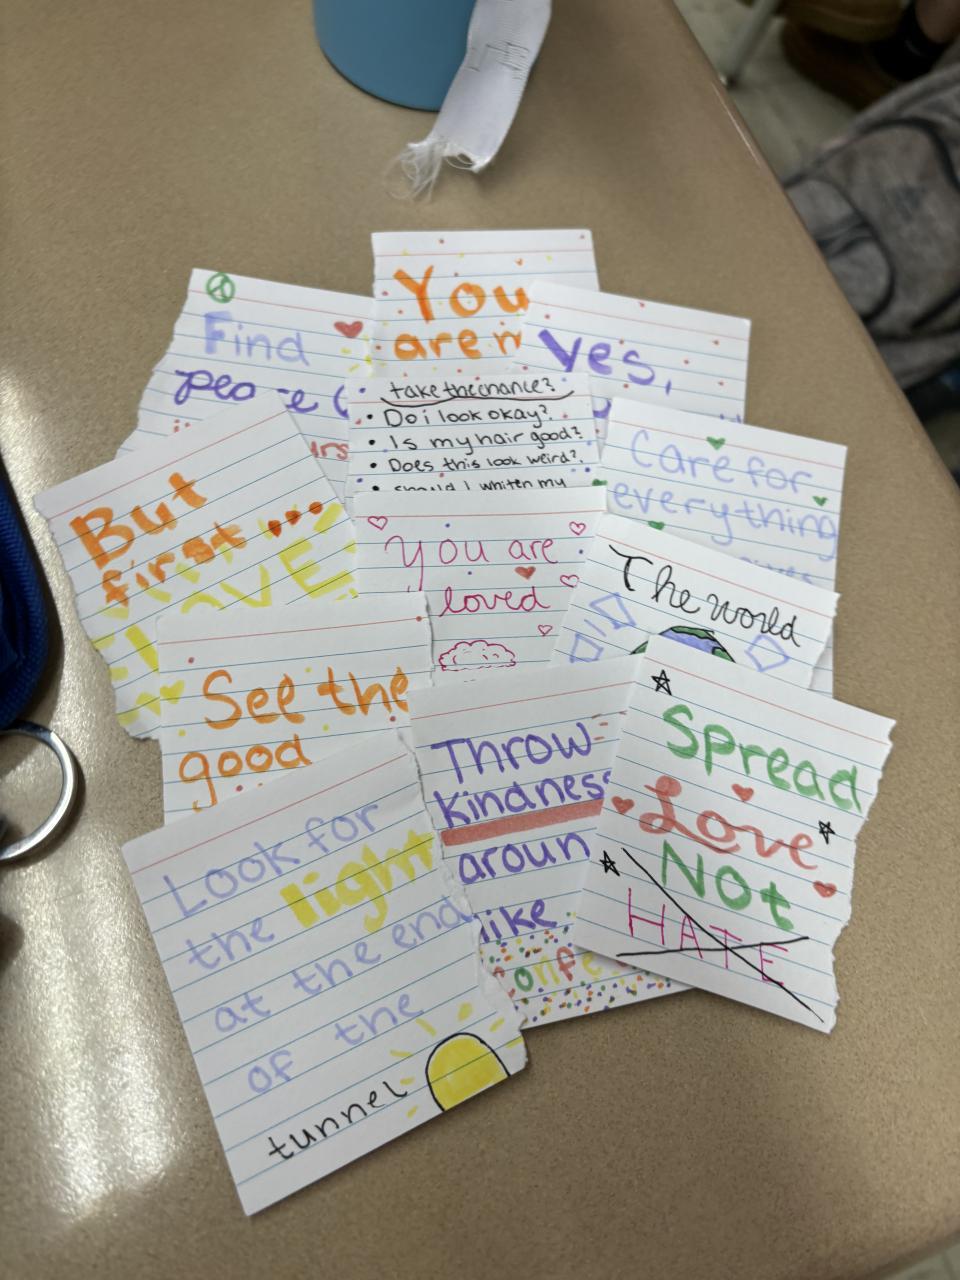 You
are
Find
yes,
take the chance?
• Do i look okay?
• Is my hair good?
• Does this look weird?
• should I whiten my
Care for
everything
But
first...
LOVE
You are
loved
The world
See the
good
Throw
Kindness
aroun
like
confe
Spread
Love
Not
HATE
Look for
the light
at the end
of the
tunnel